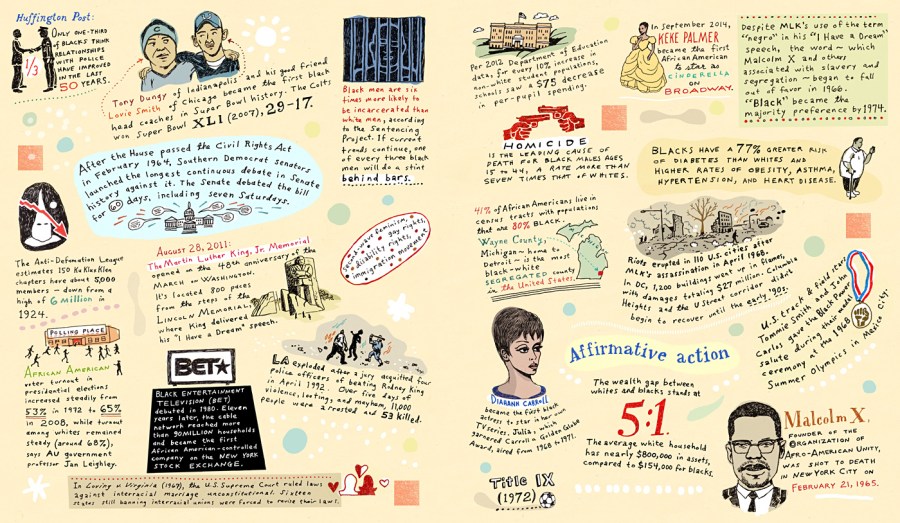 Huffington Post:
ONLY ONE-THIRD
OF BLACKS THINK
RELATIONSHIPS
WITH POLICE
HAVE IMPROVED
IN THE LAST
50 YEARS.
1/3
Tony Dungy of Indianapolis and his good friend
Lovie Smith of Chicago became the first black
head coaches in Super Bowl history. The Colts
won Super Bowl XLI (2007), 29-17.
Black men are six
times more likely to
be incarcerated than
white men, according
to the Sentencing
Project. If current
trends continue, one
of every three black
men will do a stint
behind bars.
After the House passed the Civil Rights Act
in February 1964, Southern Democrat senators
launched the longest continuous debate in Senate
history against it. The Senate debated the bill
for 60 days, including seven Saturdays.
The Anti-Defamation League
estimates 150 Ku Klux Klan
chapters have about 5,000
members - down from a
high of 6 million in
1924.
AUGUST 28, 2011:
The Martin Luther King, Jr. Memorial
opened on the 48th anniversary of the
MARCH ON WASHINGTON.
It's located 800 paces
from the steps of the
LINCOLN MEMORIAL,
where King delivered
his "I Have a Dream" speech.
second-wave feminism,
gay rights,
disability rights,
immigration movement
POLLING PLACE
AFRICAN AMERICAN
voter turnout in
presidential elections
increased steadily from
53% in 1972 to 65%
in 2008, while turnout
among whites remained
steady (around 68%),
says AU government
professor Jan Leighley.
BET★
BLACK ENTERTAINMENT
TELEVISION (BET)
debuted in 1980. Eleven
years later, the cable
network reached more
than 90 MILLION households
and became the first
African American-controlled
company on the NEW YORK
STOCK EXCHANGE.
LA exploded after a jury acquitted four
police officers of beating Rodney King
in April 1992. Over five days of
violence, looting, and mayhem, 11,000
people were arrested and 53 killed.
In Loving v. Virginia (1967), the U.S. Supreme Court ruled laws
against interracial marriage unconstitutional. Sixteen
states still banning interracial unions were forced to revise their laws.
Per 2012 Department of Education
data, for every 10% increase in
non-white student populations,
schools saw a $75 decrease
in per-pupil spending.
In September 2014,
KEKE PALMER
became the first
African American
to star as
CINDERELLA
on
BROADWAY.
Despite MLK's use of the term
"negro" in his "I Have a Dream"
speech, the word - which
Malcolm X and others
associated with slavery and
segregation - began to fall
out of favor in 1966.
"Black" became the
majority preference by 1974.
HOMICIDE
IS THE LEADING CAUSE OF
DEATH FOR BLACK MALES AGES
15 TO 44, A RATE MORE THAN
SEVEN TIMES THAT OF WHITES.
BLACKS HAVE A 77% GREATER RISK
OF DIABETES THAN WHITES AND
HIGHER RATES OF OBESITY, ASTHMA,
HYPERTENSION, AND HEART DISEASE.
41% of African Americans live in
census tracts with populations
that are 80% BLACK.
Wayne County,
Michigan - home to
Detroit - is the most
black-white
SEGREGATED county
in the United States.
Riots erupted in 110 U.S. cities after
MLK's assassination in April 1968.
In DC, 1,200 buildings went up in flames,
with damages totaling $27 million. Columbia
Heights and the U Street corridor didn't
begin to recover until the early '90s.
U.S. track & field stars
Tommie Smith and John
Carlos gave the Black Power
salute during their medal
ceremony at the 1968
Summer Olympics in Mexico City.
DIAHANN CARROLL
became the first black
actress to star in her own
TV series, Julia, which
garnered Carroll a Golden Globe
Award, aired from 1968 to 1971.
Affirmative action
The wealth gap between
whites and blacks stands at
5:1.
The average white household
has nearly $800,000 in assets,
compared to $154,000 for blacks.
Title IX
(1972)
Malcolm X,
FOUNDER OF THE
ORGANIZATION OF
AFRO-AMERICAN UNITY,
WAS SHOT TO DEATH
IN NEW YORK CITY ON
FEBRUARY 21, 1965.